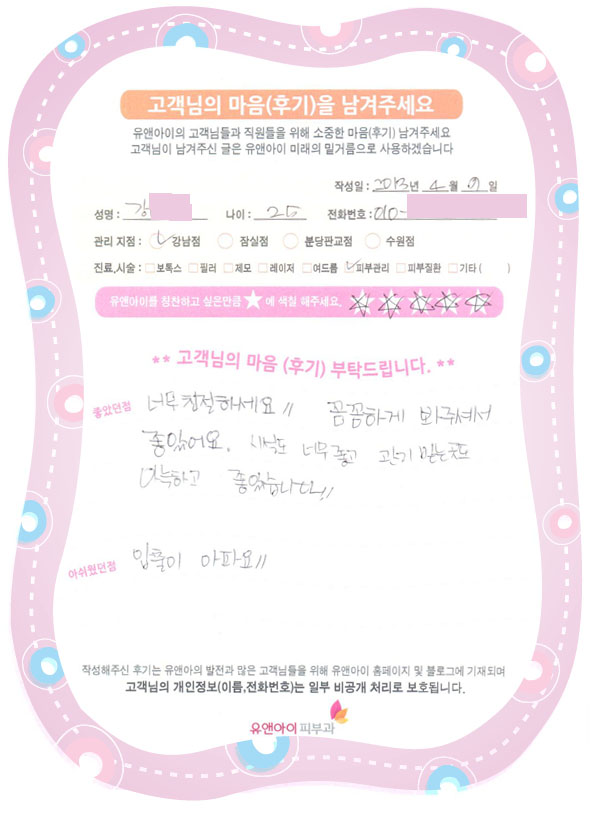 고객님의 마음(후기)을 남겨주세요
유앤아이의 고객님들과 직원들을 위해 소중한 마음(후기) 남겨주세요
고객님이 남겨주신 글은 유앤아이 미래의 밑거름으로 사용하겠습니다
작성일 : 2013년 4월 9일
성명 : 강 나이 : 25 전화번호 : 010-
관리 지점 : 강남점 잠실점 분당판교점 수원점
진료,시술 : 보톡스 필러 제모 레이저 여드름 피부관리 피부질환 기타 ( )
유앤아이를 칭찬하고 싶은만큼 ★ 에 색칠 해주세요. ★★★★★
** 고객님의 마음 (후기) 부탁드립니다. **
좋았던점 너무 친절하세요// 꼼꼼하게 봐주셔서
좋았어요. 시설도 너무 좋고 관리 받는곳도
아늑하고 좋았습니다//
아쉬웠던점 압출이 아파요//
작성해주신 후기는 유앤아의 발전과 많은 고객님들을 위해 유앤아이 홈페이지 및 블로그에 기재되며
고객님의 개인정보(이름,전화번호)는 일부 비공개 처리로 보호됩니다.
유앤아이 피부과